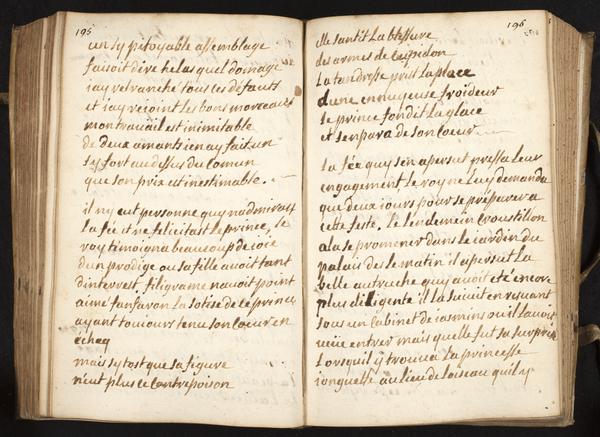 195
un sy pitoyable assemblage
faisoit dire helas quel domage
iay retranché tous les defauts
et iay rejoint les bons morceaux
mon travail est inimitable
de deux amants ien ay fait un
sy fort au dessus du comun
que son prix est inestimable.
il ny eut personne quy nadmirast
la fée et ne felicitast le prince, le
roy témoigna beaucoup de ioie
dun prodige ou sa fille avoit tant
dinterest, filigrame navoit point
aimé fanfaron la sotise de ce prince
ayant toujours tenu son coeur en
echeq
mais sytost que sa figure
neut plus le contrepoison
196
elle santit la blessure
des armes de Cupidon
La tandresse prist la place
dune ennuyeuse froideur
le prince fondit la glace
et sempara de son coeur
la fée quy sen apersut pressa leur
engagement, le roy ne luy demanda
que deux iours pour se préparer a
cette feste, le lendemain Croustillon
ala se promener dans le iardin du
palais des le matin il apersut la
belle autruche quy avoit eté encore
plus diligente il la suivit en resvant
sous un cabinet de iasmins ou il lavoit
veue entrer mais quelle fut sa surprise
Lorsquil y trouva la princesse
ionquette au lieu de loiseau quil y